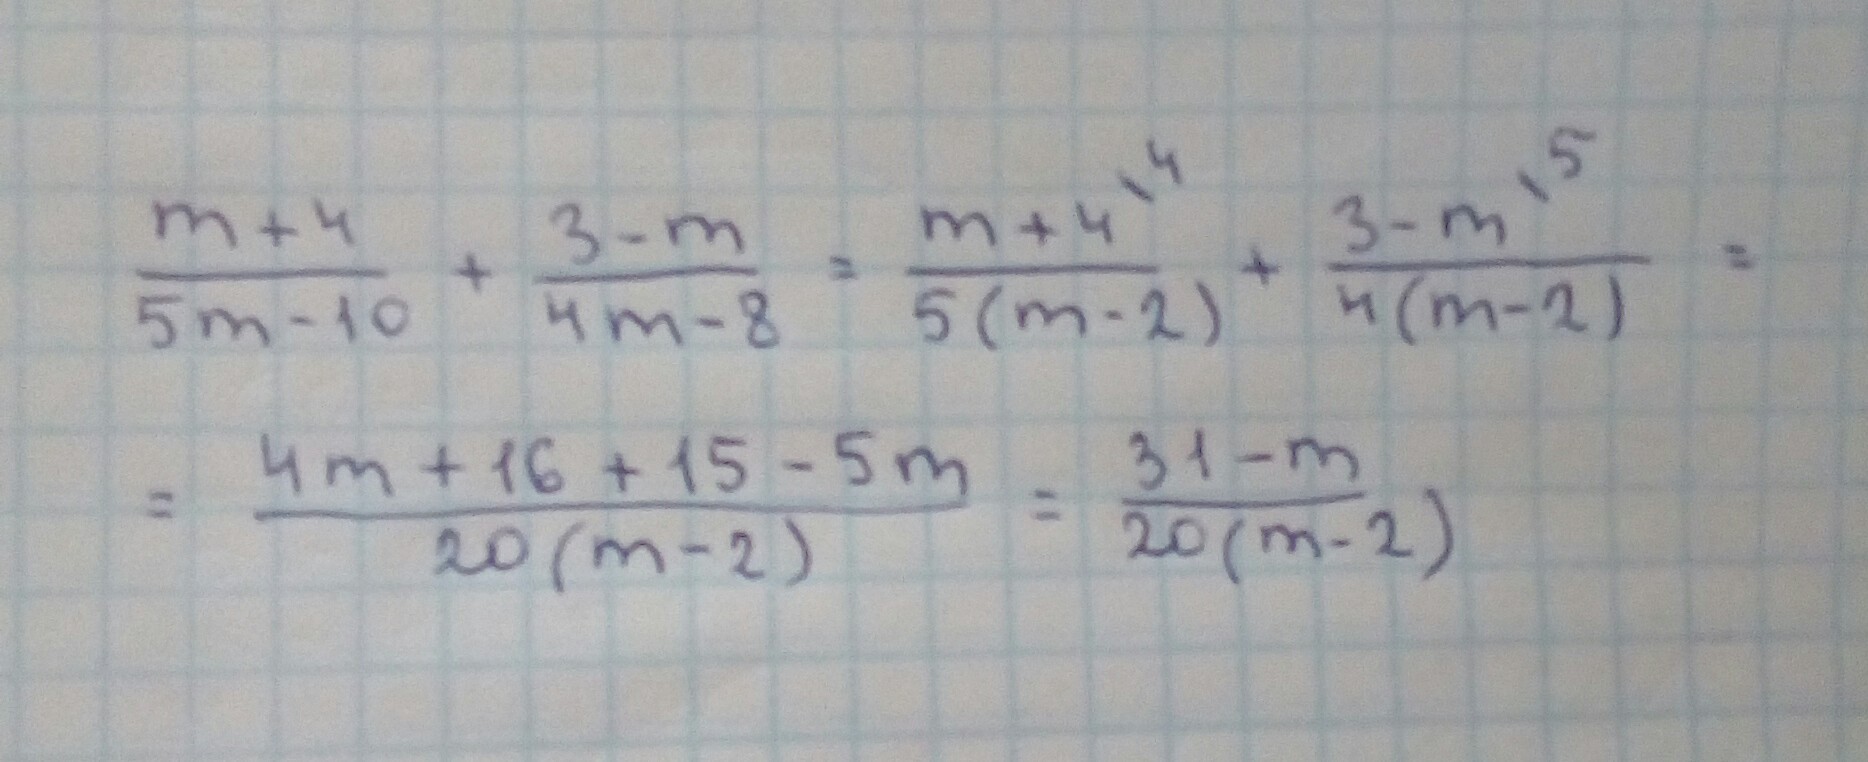 (m+4)/(5m-10) + (3-m)/(4m-8) = (m+4)/(5(m-2))⁽⁴ + (3-m)/(4(m-2))⁽⁵ =
= (4m+16+15-5m)/(20(m-2)) = (31-m)/(20(m-2))